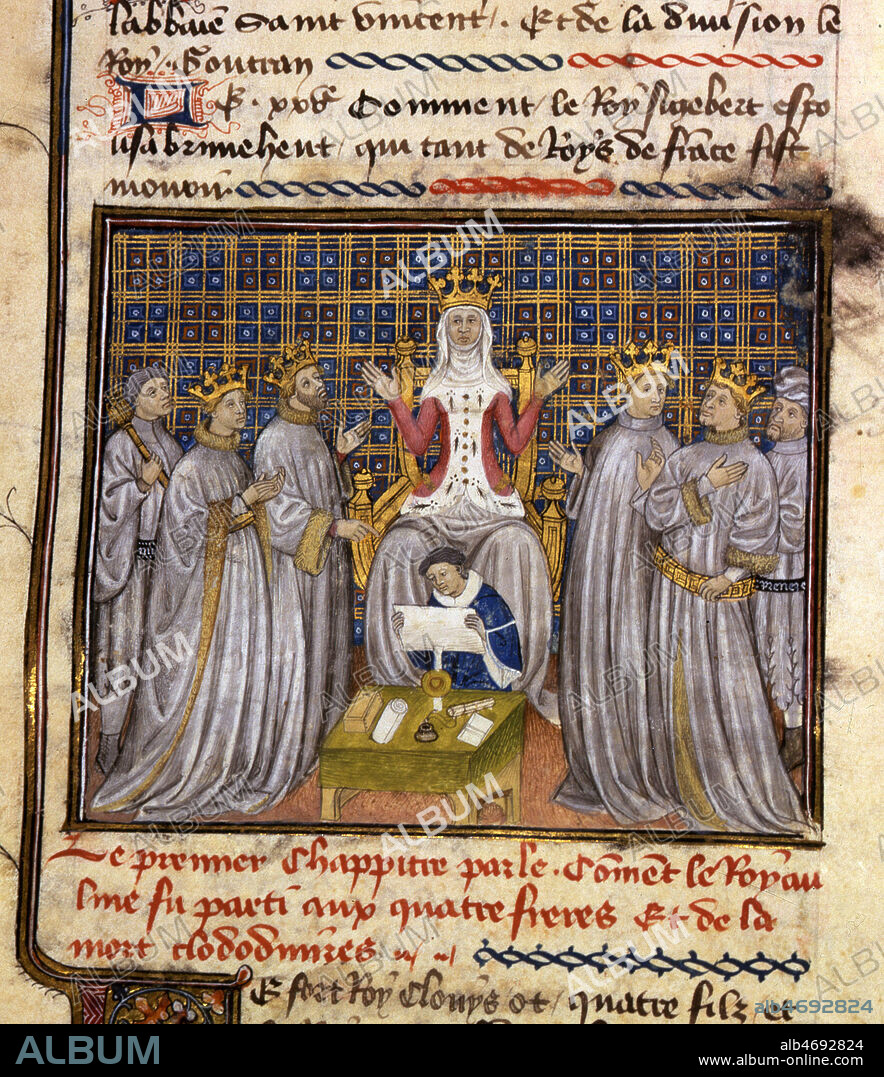 labbaie Saint vincent . Et de la division le
Roy . Goutran
Le . xxv͞e Comment / le Roy sigebert espo
usa brunehent / qui tant de Roys de france fist
mouoir
Le premier Chappitre parle . Com͞ent le Royau
lme fu parti aux quatre freres Et de la
mort clodomires
fort Roy Clouys ot / quatre filz et
ALBUM
alb4692824
ALBUM
alb4692824
www.album-online.com